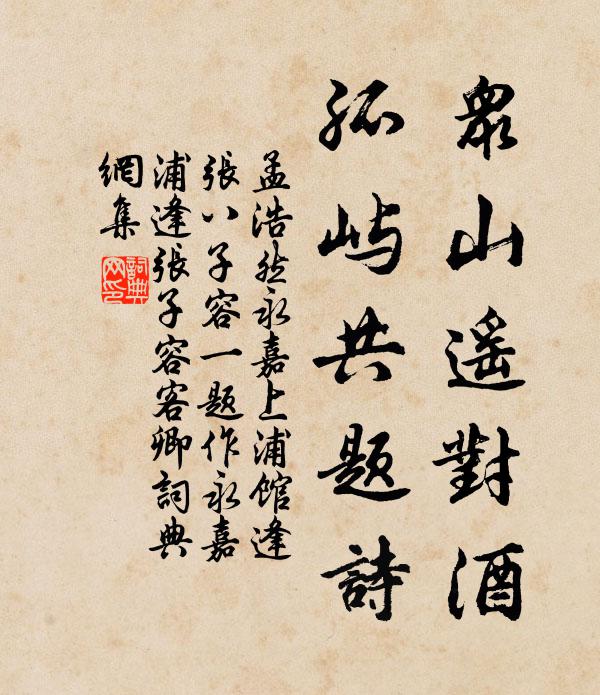 眾山遥對酒
孤屿共题詩
孟浩然永嘉上浦馆逢
張八子容一题作永嘉
浦逢張子容客卿詞典
網集
詞典網印